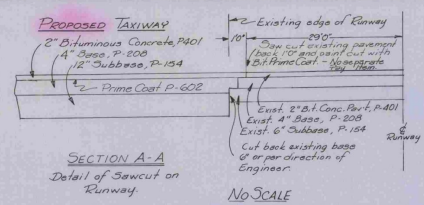 PROPOSED TAXIWAY
2" Bituminous Concrete, P401
4" Base, P-208
12" Subbase, P-154
Prime Coat P-602
Existing edge of Runway
1'0"
29'0"
Saw cut existing pavement
back 1'0" and paint cut with
Bit. Prime Coat. - No separate
Pay Item.
Exist. 2" Bit. Conc. Pav't, P-401
Exist. 4" Base, P-208
Exist. 6" Subbase, P-154
Cut back existing base
6" or per direction of
Engineer
℄
Runway
SECTION A-A
Detail of Sawcut on
Runway.
NO SCALE